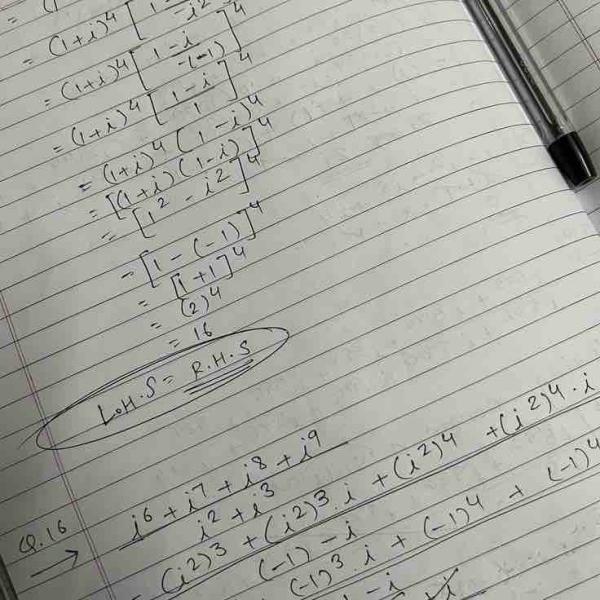 = (1+i)⁴ [1- / -i²
= (1+i)⁴ [1-i / -(-1)]⁴
= (1+i)⁴ [1-i / 1]⁴
= (1+i)⁴ (1-i)⁴
= [(1+i)(1-i)]⁴
= [1² - i²]⁴
= [1-(-1)]⁴
= [1+1]⁴
= (2)⁴
= 16
L.H.S = R.H.S
Q.16
→ i⁶ + i⁷ + i⁸ + i⁹
i² + i³
= (i²)³ + (i²)³.i + (i²)⁴ + (i²)⁴.i
(-1) - i
(-1)³.i + (-1)⁴ + (-1)⁴
1-i